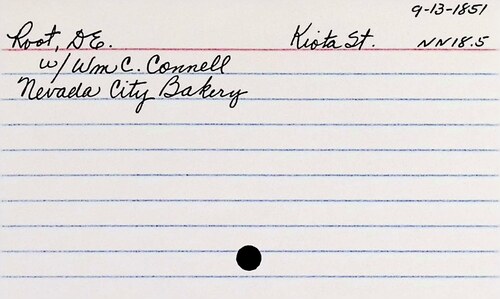 9-13-1851
Root, D E. Kiota St. NN18.5
w/ Wm C. Connell
Nevada City Bakery